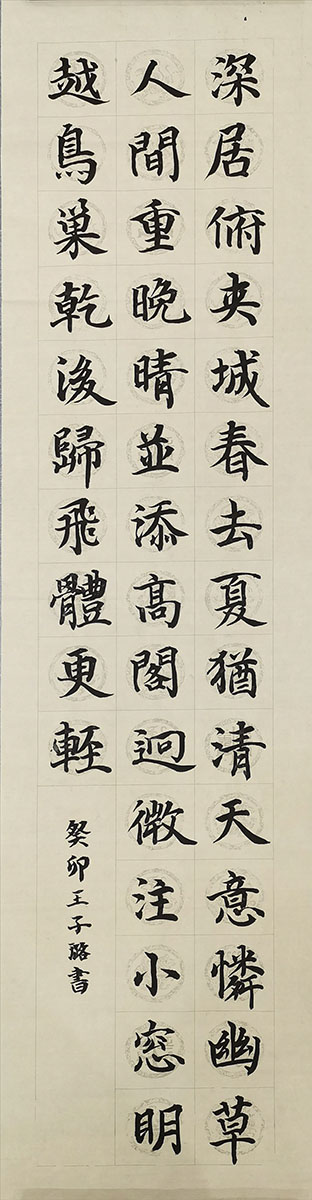 深居俯夹城春去夏猶清天意憐幽草
人間重晚晴並添高閣迥微注小窓明
越鳥巢乾後歸飛體更輕
癸卯王子璐書